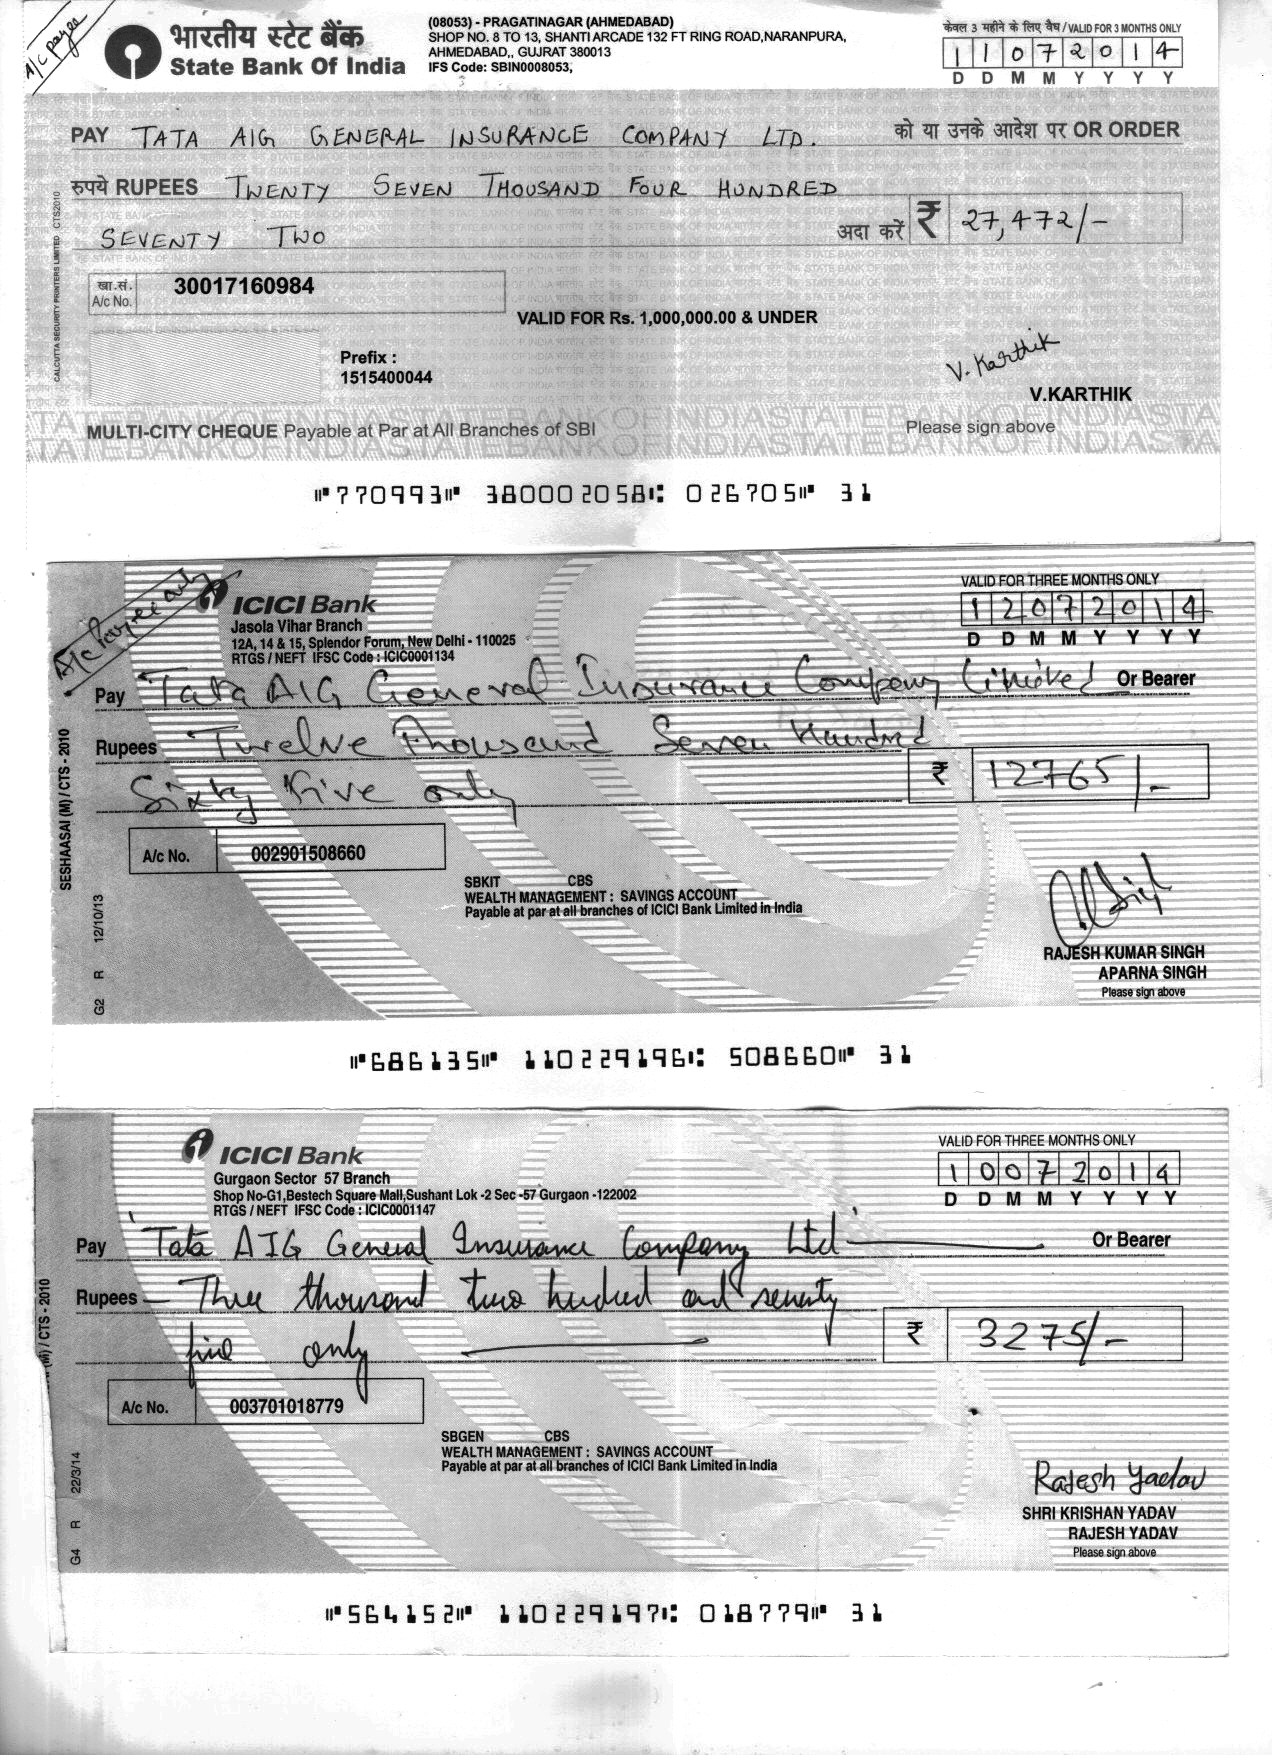 A/c payee
भारतीय स्टेट बैंक
State Bank Of India
(08053) - PRAGATINAGAR (AHMEDABAD)
SHOP NO. 8 TO 13, SHANTI ARCADE 132 FT RING ROAD,NARANPURA,
AHMEDABAD,, GUJRAT 380013
IFS Code: SBIN0008053,
केवल 3 महीने के लिए वैध / VALID FOR 3 MONTHS ONLY
1 1 0 7 2 0 1 4
D D M M Y Y Y Y
PAY TATA AIG GENERAL INSURANCE COMPANY LTD. को या उनके आदेश पर OR ORDER
रुपये RUPEES TWENTY SEVEN THOUSAND FOUR HUNDRED
SEVENTY TWO अदा करें ₹ 27,472/-
खा.सं.
A/c No. 30017160984
VALID FOR Rs. 1,000,000.00 & UNDER
Prefix :
1515400044
V. Karthik
V.KARTHIK
MULTI-CITY CHEQUE Payable at Par at All Branches of SBI
Please sign above
CALCUTTA SECURITY PRINTERS LIMITED CTS2010
⑈770993⑈ 380002058⑆ 026705⑈ 31
A/c Payee only
ICICI Bank
Jasola Vihar Branch
12A, 14 & 15, Splendor Forum, New Delhi - 110025
RTGS / NEFT IFSC Code : ICIC0001134
VALID FOR THREE MONTHS ONLY
1 2 0 7 2 0 1 4
D D M M Y Y Y Y
Pay Tata AIG General Insurance Company Limited Or Bearer
Rupees Twelve Thousand Seven Hundred
Sixty Five only ₹ 12765/-
A/c No. 002901508660
SBKIT CBS
WEALTH MANAGEMENT : SAVINGS ACCOUNT
Payable at par at all branches of ICICI Bank Limited in India
RAJESH KUMAR SINGH
APARNA SINGH
Please sign above
SESHAASAI (M) / CTS - 2010
G2 R 12/10/13
⑈686135⑈ 110229196⑆ 508660⑈ 31
ICICI Bank
Gurgaon Sector 57 Branch
Shop No-G1,Bestech Square Mall,Sushant Lok -2 Sec -57 Gurgaon -122002
RTGS / NEFT IFSC Code : ICIC0001147
VALID FOR THREE MONTHS ONLY
1 0 0 7 2 0 1 4
D D M M Y Y Y Y
Pay Tata AIG General Insurance Company Ltd Or Bearer
Rupees Three thousand two hundred and seventy
five only ₹ 3275/-
A/c No. 003701018779
SBGEN CBS
WEALTH MANAGEMENT : SAVINGS ACCOUNT
Payable at par at all branches of ICICI Bank Limited in India
Rajesh Yadav
SHRI KRISHAN YADAV
RAJESH YADAV
Please sign above
(M) / CTS - 2010
G4 R 22/3/14
⑈564152⑈ 110229197⑆ 018779⑈ 31